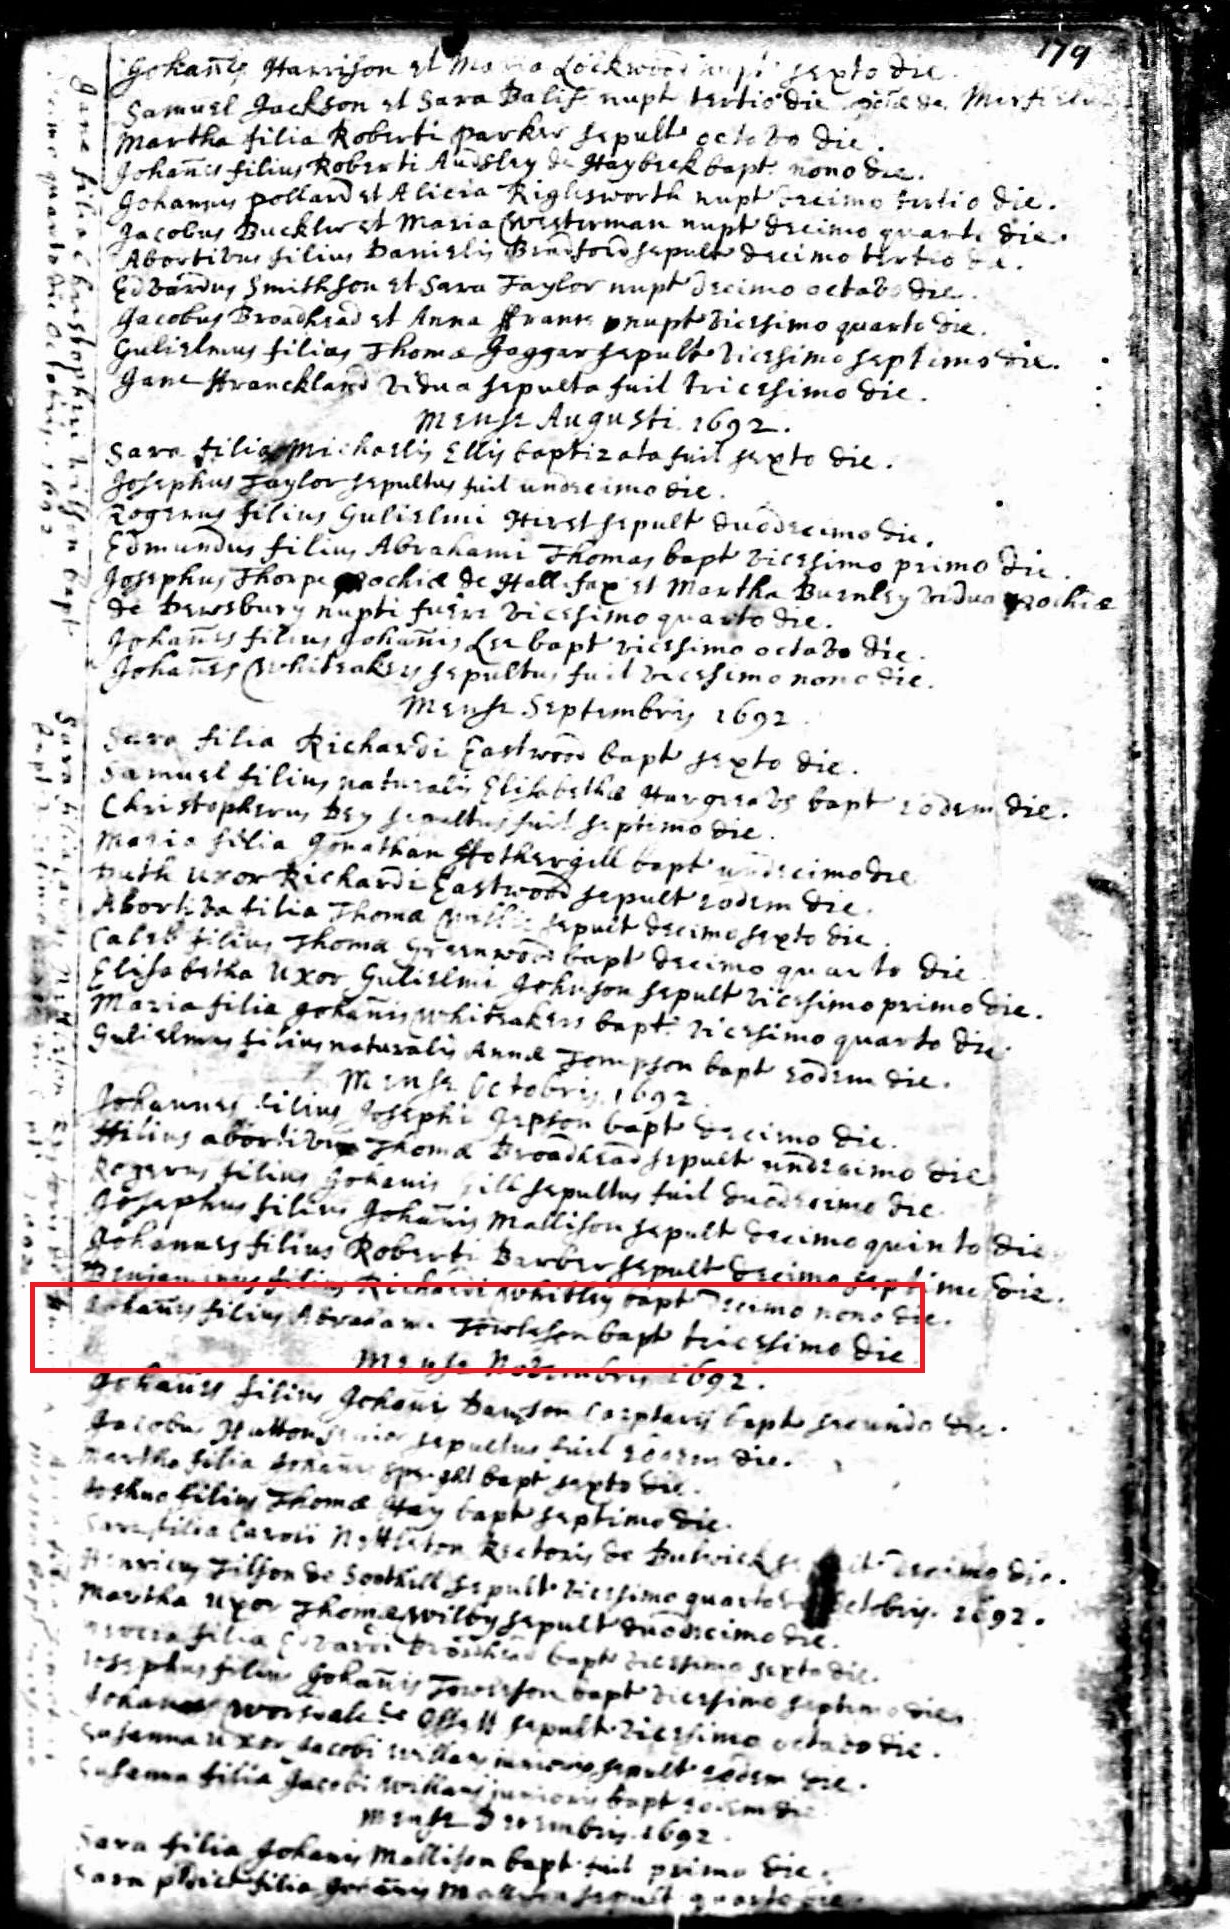 179
Johañes Harrison et Maria Lockwood nupt sexto die.
Samuel Jackson et Sara Balif nupt tertio die de Mirfield
Martha filia Roberti Parker sepult octavo die.
Johañes filius Roberti Audsley de Haybeck bapt. nono die.
Johannes Pollard et Alicia Riglesworth nupt decimo tertio die.
Jacobus Buckler et Maria Westerman nupt decimo quarto die.
Abortivus filius Danielis Bradford sepult decimo tertio die.
Edvardus Smithson et Sara Taylor nupt decimo octavo die.
Jacobus Broadhead et Anna nupt vicesimo quarto die.
Gulielmus filius Thomæ Jaggar sepult vicesimo septimo die.
Jane ffranckland vidua sepulta fuit tricesimo die.
Mense Augusti. 1692.
Sara filia Michaelis Ellis baptizata fuit sexto die.
Josephus Taylor sepultus fuit undecimo die.
Rogerus filius Gulielmi Hirst sepult duodecimo die.
Edmundus filius Abrahami Thomas bapt vicesimo primo die.
Josephus Thorpe pochiæ de Hallifax et Martha Burnley vidua pochiæ
de Dewsbury nupti fuere vicesimo quarto die.
Johañes filius Johañis Lee bapt vicesimo octavo die.
Johañes Whiteakers sepultus fuit vicesimo nono die.
Mense Septembris 1692.
Sara filia Richardi Eastwood bapt sexto die.
Samuel filius naturalis Elisabethæ Hargreaves bapt eodem die.
Christopherus Dey sepultus fuit septimo die.
Maria filia Jonathan ffothergill bapt undecimo die
Ruth uxor Richardi Eastwood sepult eodem die.
Abortiva filia Thomæ sepult decimo sexto die.
Caleb filius Thomæ Greenwood bapt decimo quarto die
Elisabetha uxor Gulielmi Johnson sepult vicesimo primo die.
Maria filia Johañis Whiteakers bapt. vicesimo quarto die.
Gulielmus filius naturalis Annæ Tompson bapt eodem die.
Mense Octobris. 1692.
Johannes filius Josephi Jepson bapt decimo die.
ffilius abortivus Thomæ Broadhead sepult undecimo die
Rogerus filius Johanis Gill sepultus fuit duodecimo die.
Josephus filius Johañis Mallison sepult decimo quinto die
Johannes filius Roberti Barber sepult decimo septimo die.
Beniaminus filius Richardi Whitley bapt decimo nono die.
Johañes filius Abrahami Towleson bapt tricesimo die
Mense Novembris 1692.
Johañes filius Johañi Dawson bapt secundo die.
Jacobus Hutton senior sepultus fuit eodem die.
Martha filia Johañis Speight bapt sexto die.
Joshua filius Thomæ Hay bapt septimo die.
Sara filia Caroli Nettleton Rectoris de Bulwick decimo die.
Henricus Tilson de Soothill sepult vicesimo quarto Octobris. 1692.
Martha uxor Thomæ Wilby sepult duodecimo die.
filia Edvardi Broadhead bapt vicesimo sexto die.
Josephus filius Johañis Towleson bapt vicesimo septimo die.
Johannes Worsvale de Ossett sepult vicesimo octavo die.
Susanna uxor Jacobi Willans junioris sepult eodem die.
Susanna filia Jacobi Willans junioris bapt eodem die
Mense Decembris. 1692.
Sara filia Johanis Mallison bapt fuit primo die.
Sara filia Johañis Mallison sepult quarto die.
Jane filia Christopheri bapt
quarto die Octobris 1692.
Sara filia Caroli Nettleton